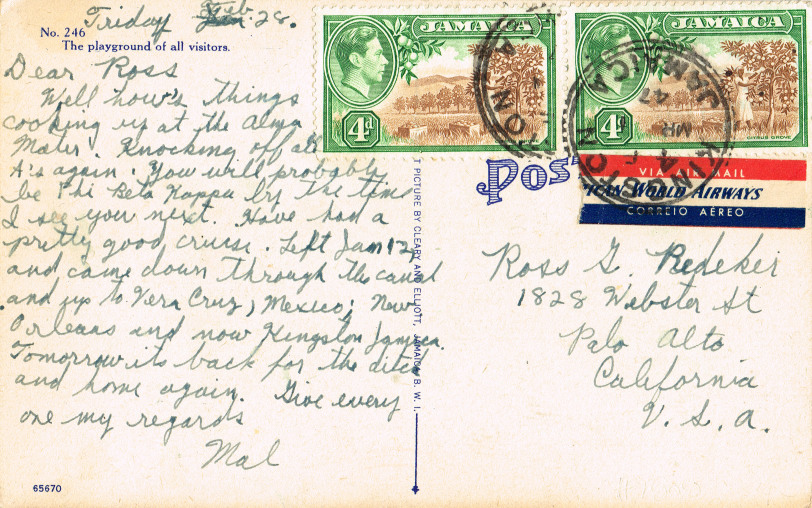 Friday Feb. 28.
No. 246
The playground of all visitors.
Dear Ross
Well how's things
cooking up at the Alma
Mater. Knocking off all
A's again. You will probably
be Phi Beta Kappa by the time
I see you next. Have had a
pretty good cruise. Left Jan 12
and came down through the canal
and up to Vera Cruz, Mexico; New
Orleans and now Kingston Jamaica.
Tomorrow its back for the ditch
and home again. Give every
one my regards
Mal
65670
PICTURE BY CLEARY AND ELLIOTT, JAMAICA, B. W. I.
JAMAICA
4d
JAMAICA
4d
CITRUS GROVE
KINGSTON
JAMAICA
MR
47
Pos
VIA AIR MAIL
ICAN WORLD AIRWAYS
CORREIO AÉREO
Ross G. Redeker
1828 Webster St
Palo Alto
California
U. S. A.